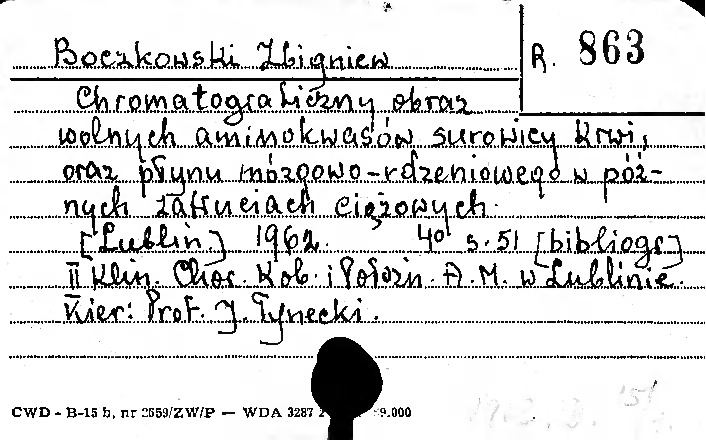 Boczkowski Zbigniew
R. 863
Chromatograficzny obraz
wolnych aminokwasów surowicy krwi,
oraz płynu mózgowo-rdzeniowego w póź-
nych zatruciach ciążowych.
[Lublin.] 1962. 4° s. 51 [bibliogr]
II Klin. Chor. Kob. i Położn. A.M. w Lublinie.
Kier: Prof. J. Tynecki.
CWD - B-15 b, nr 2659/ZW/P — WDA 3287
9.000